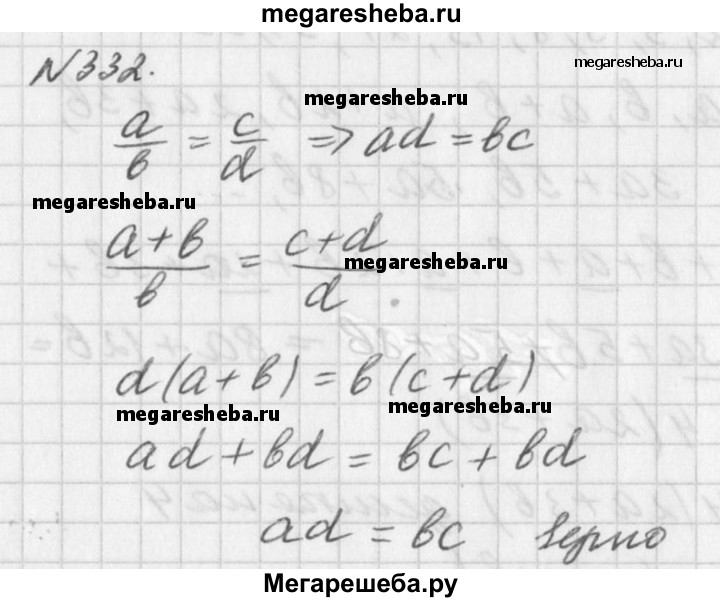 megaresheba.ru
N332.
megaresheba.ru
megaresheba.ru
a/в = c/d => ad = вc
megaresheba.ru
(a+в)/в = (c+d)/d
megaresheba.ru
d(a+в) = в(c+d)
megaresheba.ru megaresheba.ru
ad+вd = вc+вd
ad = вc Верно
Мегарешеба.ру